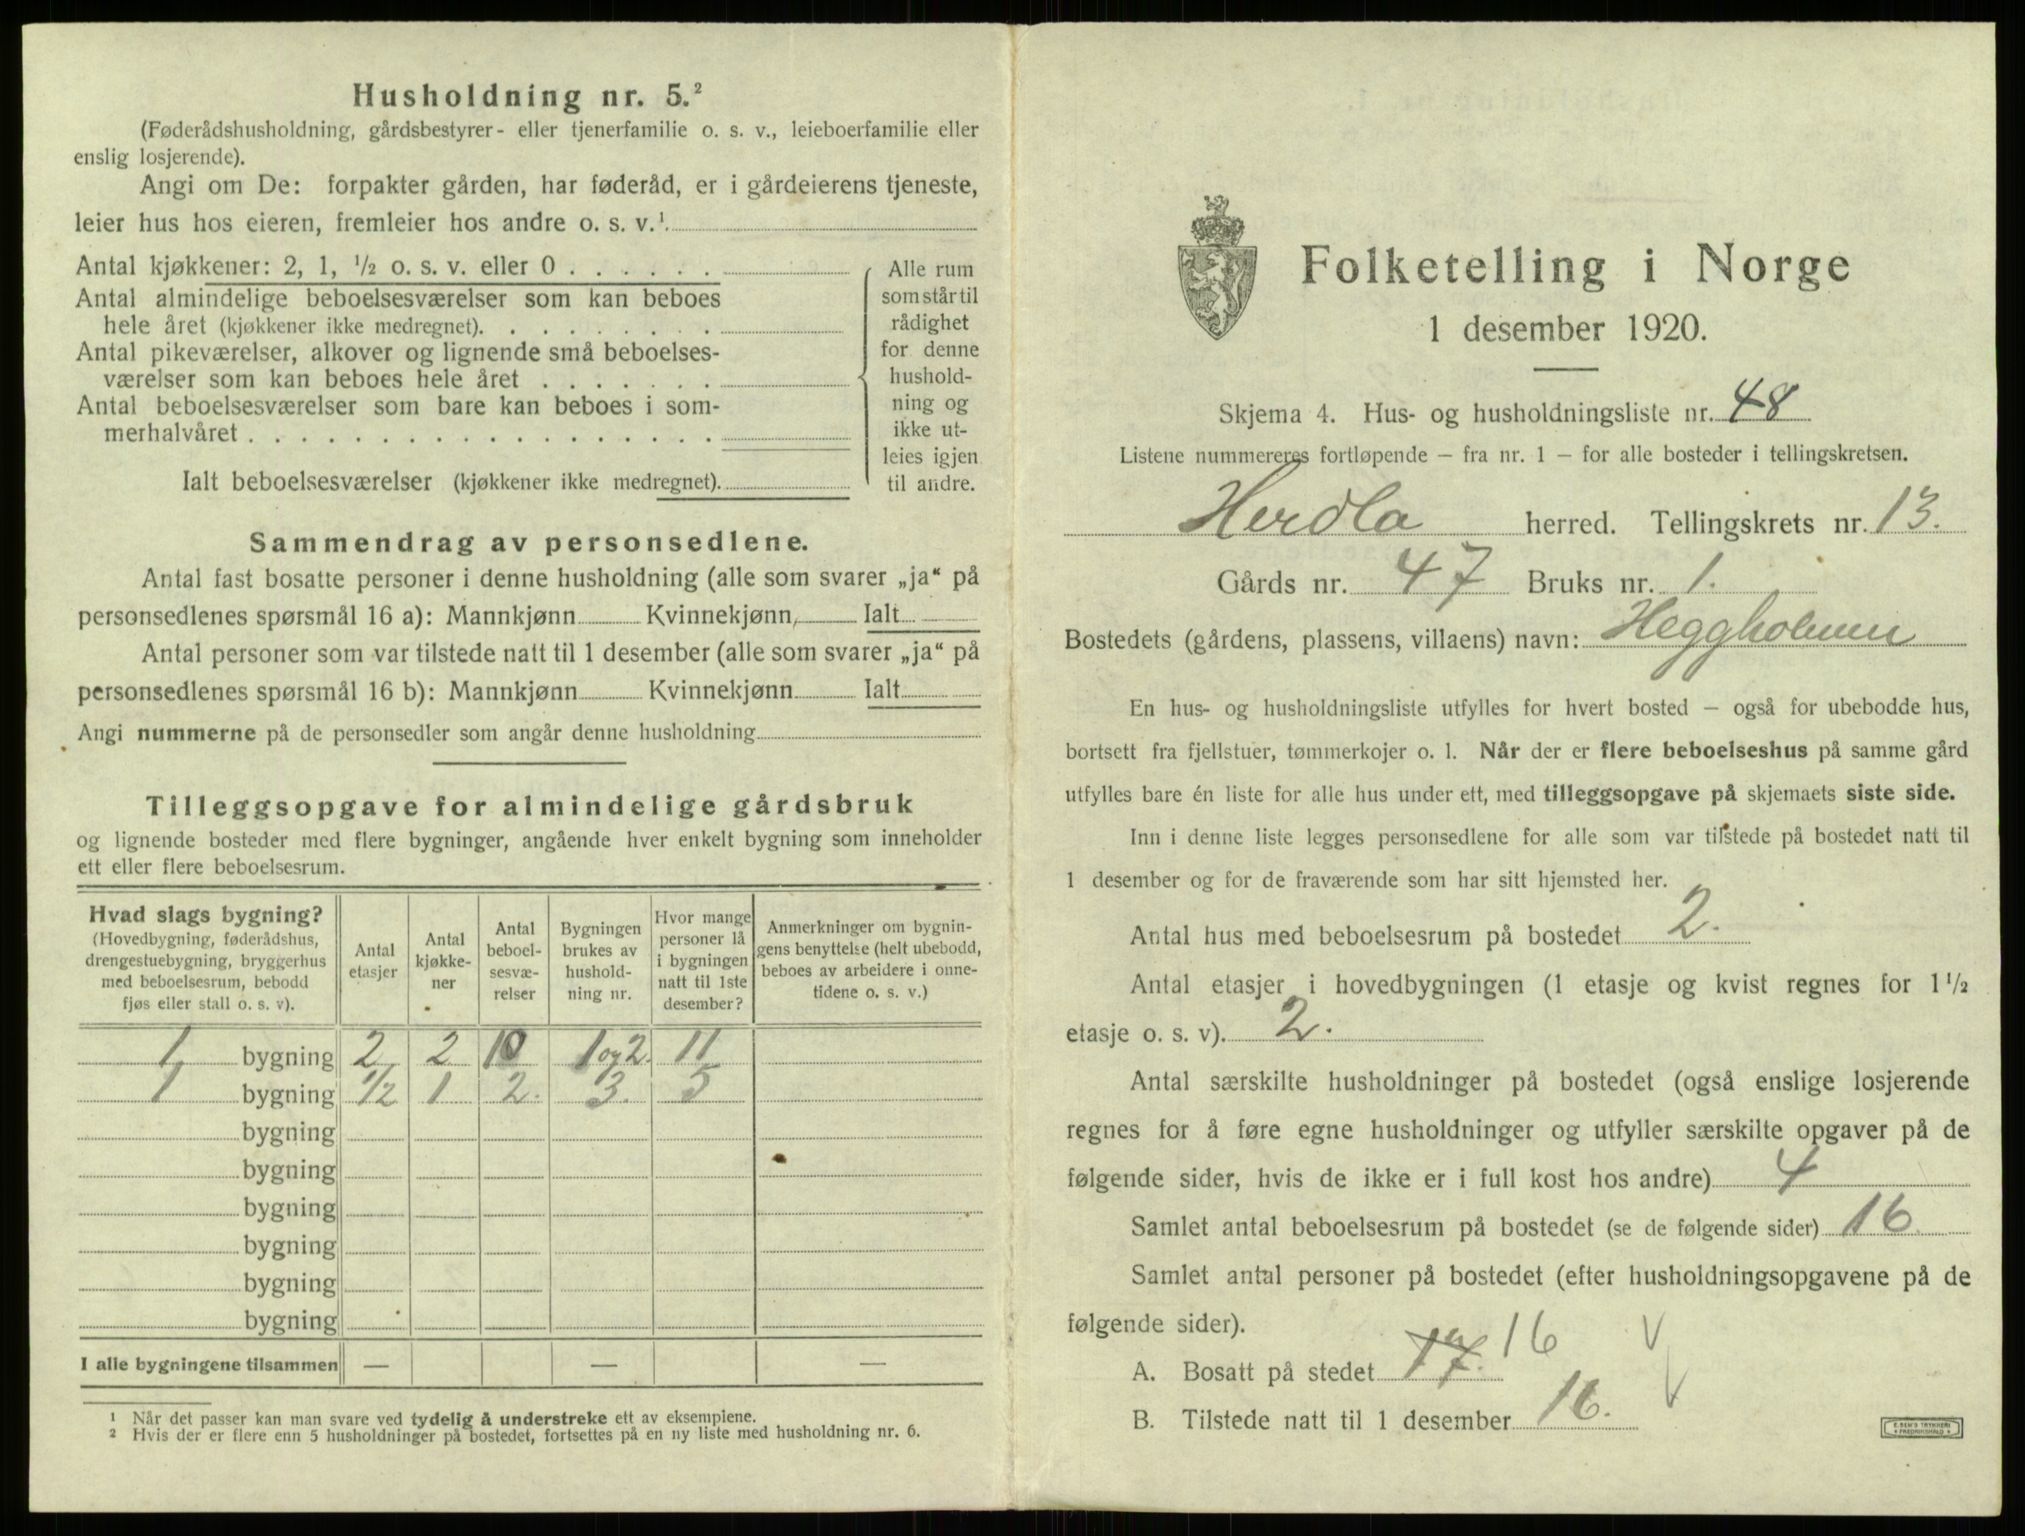 Husholdning nr. 5.²
(Føderådshusholdning, gårdsbestyrer- eller tjenerfamilie o. s. v., leieboerfamilie eller
enslig losjerende).
Angi om De: forpakter gården, har føderåd, er i gårdeierens tjeneste,
leier hus hos eieren, fremleier hos andre o. s. v.¹.
Antal kjøkkener: 2, 1, ½ o. s. v. eller 0 . . . . . .
Antal almindelige beboelsesværelser som kan beboes
hele året (kjøkkener ikke medregnet). . . . . . . . .
Antal pikeværelser, alkover og lignende små beboelses-
værelser som kan beboes hele året . . . . . . .
Antal beboelsesværelser som bare kan beboes i som-
merhalvåret . . . . . . . . . . . . . . . . . .
Ialt beboelsesværelser (kjøkkener ikke medregnet).
Alle rum
som står til
rådighet
for denne
hushold-
ning og
ikke ut-
leies igjen
til andre.
Sammendrag av personsedlene.
Antal fast bosatte personer i denne husholdning (alle som svarer „ja“ på
personsedlenes spørsmål 16 a): Mannkjønn Kvinnekjønn, Ialt
Antal personer som var tilstede natt til 1 desember (alle som svarer „ja“ på
personsedlenes spørsmål 16 b): Mannkjønn Kvinnekjønn Ialt
Angi nummerne på de personsedler som angår denne husholdning
Tilleggsopgave for almindelige gårdsbruk
og lignende bosteder med flere bygninger, angående hver enkelt bygning som inneholder
ett eller flere beboelsesrum.
Hvad slags bygning?
(Hovedbygning, føderådshus,
drengestuebygning, bryggerhus
med beboelsesrum, bebodd
fjøs eller stall o. s. v).
Antal
etasjer
Antal
kjøkke-
ner
Antal
beboel-
sesvæ-
relser
Bygningen
brukes av
hushold-
ning nr.
Hvor mange
personer lå
i bygningen
natt til 1ste
desember?
Anmerkninger om bygnin-
gens benyttelse (helt ubebodd,
beboes av arbeidere i onne-
tidene o. s. v.)
1 bygning 2 2 10 1 og 2. 11
1 bygning ½ 1 2. 3. 5
bygning
bygning
bygning
bygning
bygning
bygning
I alle bygningene tilsammen — — —
¹ Når det passer kan man svare ved tydelig å understreke ett av eksemplene.
² Hvis der er flere enn 5 husholdninger på bostedet, fortsettes på en ny liste med husholdning nr. 6.
Folketelling i Norge
1 desember 1920.
Skjema 4. Hus- og husholdningsliste nr. 48
Listene nummereres fortløpende – fra nr. 1 – for alle bosteder i tellingskretsen.
Herdla herred. Tellingskrets nr. 13.
Gårds nr. 47 Bruks nr. 1.
Bostedets (gårdens, plassens, villaens) navn: Heggholmen
En hus- og husholdningsliste utfylles for hvert bosted – også for ubebodde hus,
bortsett fra fjellstuer, tømmerkojer o. l. Når der er flere beboelseshus på samme gård
utfylles bare én liste for alle hus under ett, med tilleggsopgave på skjemaets siste side.
Inn i denne liste legges personsedlene for alle som var tilstede på bostedet natt til
1 desember og for de fraværende som har sitt hjemsted her.
Antal hus med beboelsesrum på bostedet 2.
Antal etasjer i hovedbygningen (1 etasje og kvist regnes for 1½
etasje o. s. v). 2.
Antal særskilte husholdninger på bostedet (også enslige losjerende
regnes for å føre egne husholdninger og utfyller særskilte opgaver på de
følgende sider, hvis de ikke er i full kost hos andre) 4
Samlet antal beboelsesrum på bostedet (se de følgende sider) 16.
Samlet antal personer på bostedet (efter husholdningsopgavene på de
følgende sider).
A. Bosatt på stedet 17. 16
B. Tilstede natt til 1 desember 16.
E. SEM'S TRYKKERI
FREDRIKSHALD